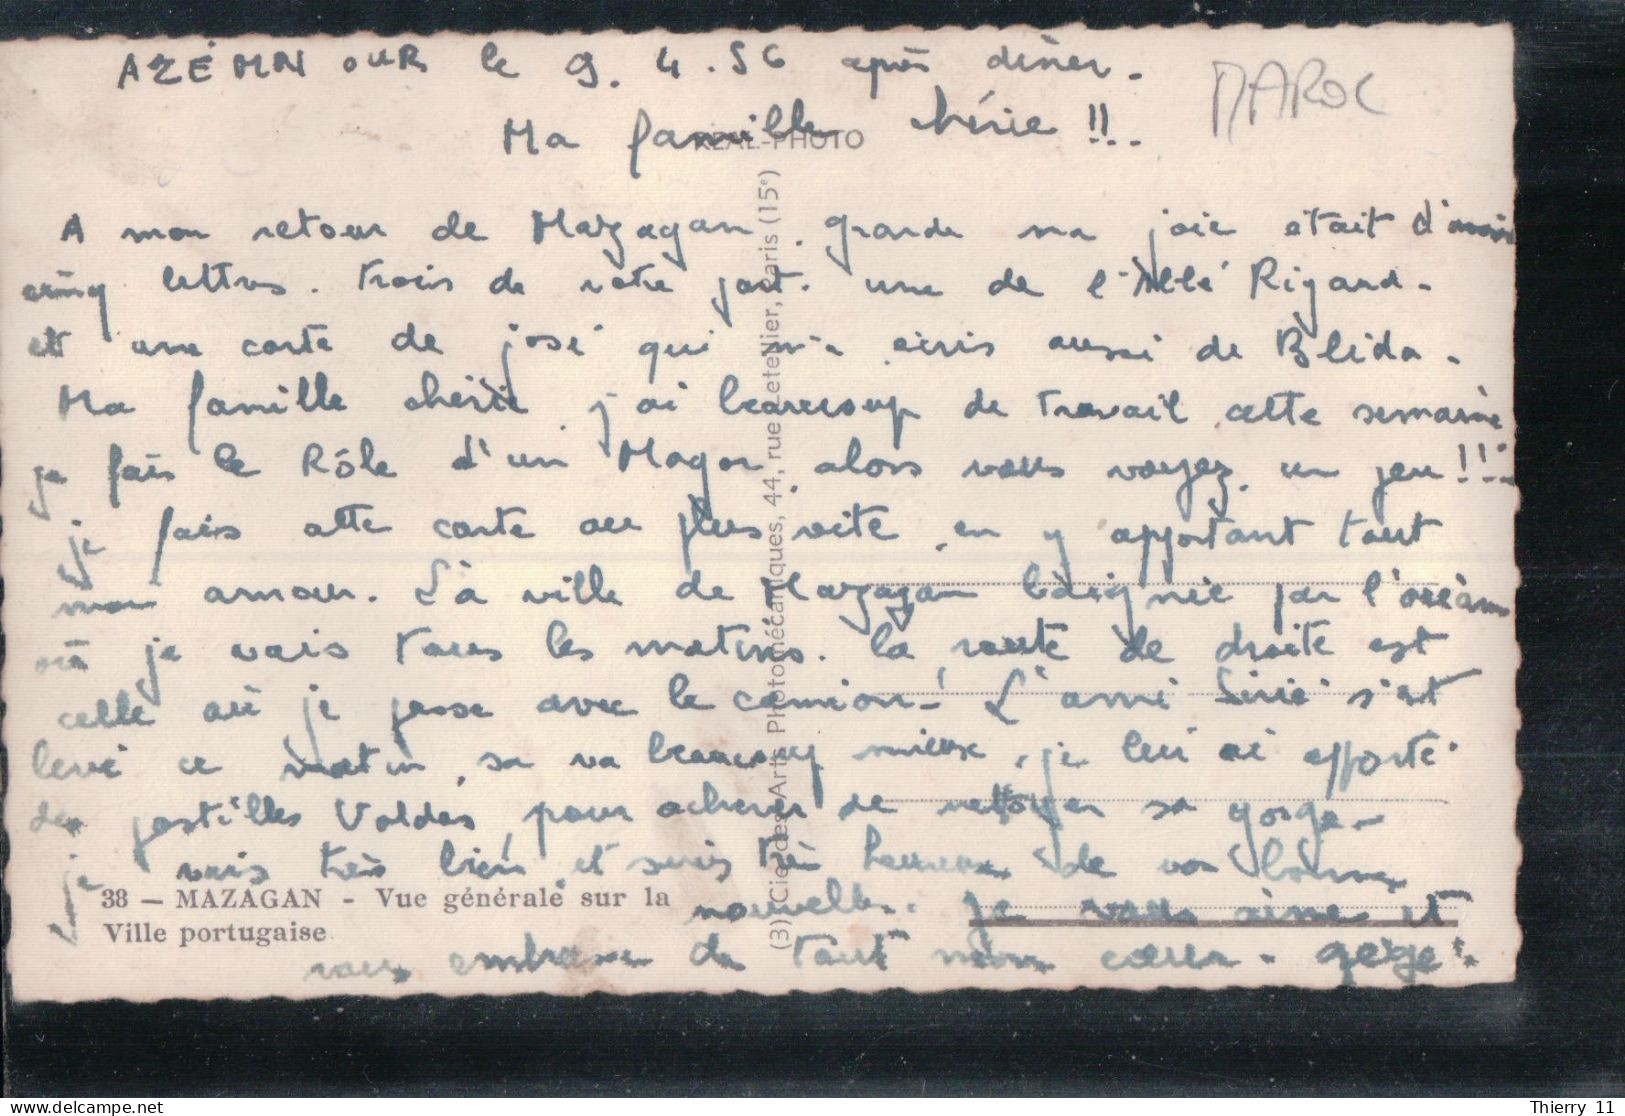 AZÉMNOUR le 9.4.56 après dîner.
MAROC
Ma famille chérie !!..
REAL-PHOTO
A mon retour de Mazagan, grande ma joie était d'avoir
cinq lettres. trois de votre part. une de l'Abbé Rigaud.
et une carte de josé qui m'a écris aussi de Blida.
Ma famille chérie, j'ai beaucoup de travail cette semaine
je fais le Rôle d'un Major, alors vous voyez un peu !!!..
je fais cette carte au plus vite, en y apportant tout
mon amour. La ville de Mazagan baignée par l'océan
où je vais tous les matins. la route de droite est
celle où je passe avec le camion! L'ami s'est
levé ce matin, sa va beaucoup mieux, je lui ai apporté
des pastilles Valdas, pour achever de nettoyer sa gorge.
je vais très bien, et suis très heureux de vos bonnes
nouvelles. je vous aime et
vous embrasse de tout mon cœur. gégé.
38 — MAZAGAN - Vue générale sur la
Ville portugaise
(3) Cie des Arts Photomécaniques, 44, rue Letellier, Paris (15e)
Thierry 11